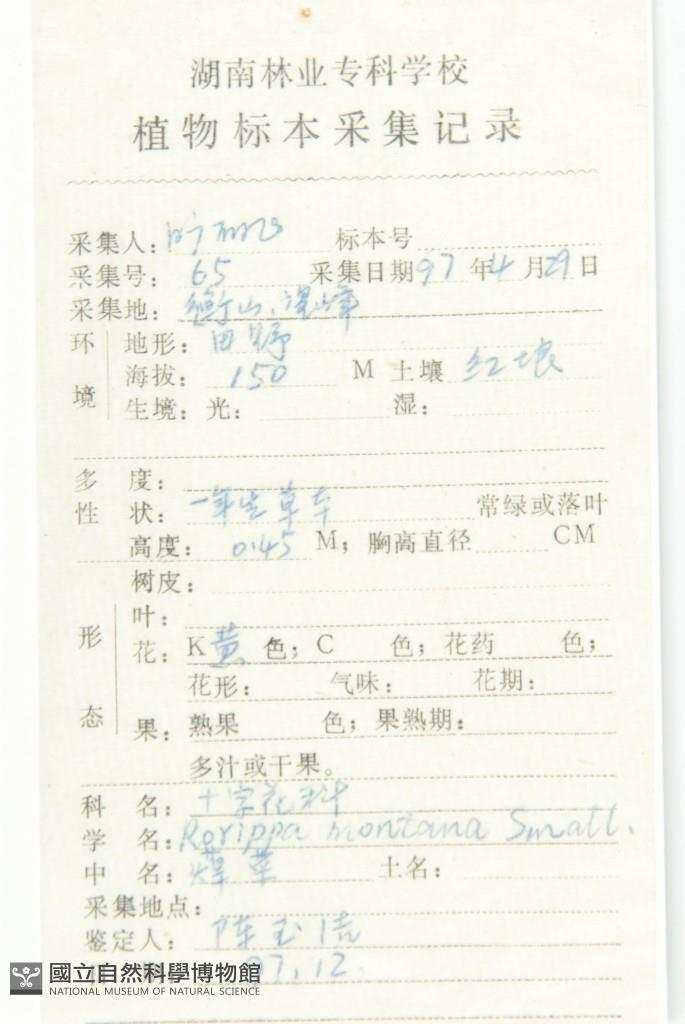 湖南林业专科学校
植物标本采集记录
采集人: 标本号
采集号: 65 采集日期97年4月29日
采集地: 衡山.
环境 地形: 田野
海拔: 150 M 土壤 红壤
生境: 光: 湿:
多度:
性状: 一年生草本 常绿或落叶
高度: 0.45 M; 胸高直径 CM
形态 树皮:
叶:
花: K黄色; C 色; 花药 色;
花形: 气味: 花期:
果: 熟果 色; 果熟期:
多汁或干果。
科名: 十字花科
学名: Rorippa montana Small.
中名: 蔊菜 土名:
采集地点:
鉴定人: 陈玉洁
97.12.
國立自然科學博物館
NATIONAL MUSEUM OF NATURAL SCIENCE